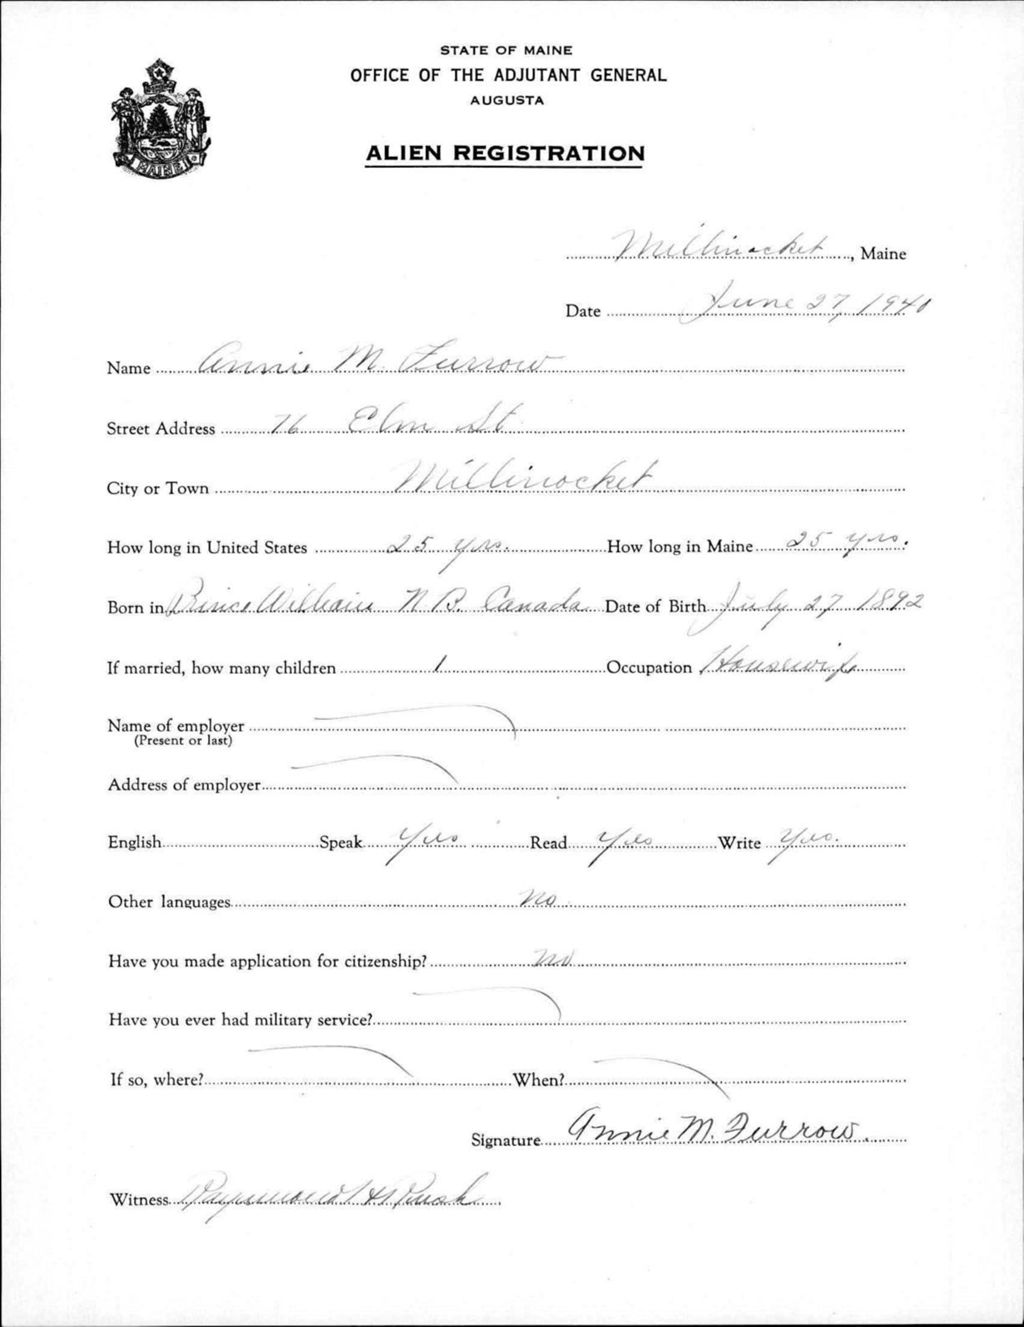 STATE OF MAINE
OFFICE OF THE ADJUTANT GENERAL
AUGUSTA
ALIEN REGISTRATION
Millinocket, Maine
Date June 27, 1940
Name Annie M. Furrow
Street Address 76 Elm St
City or Town Millinocket
How long in United States 25 yrs. How long in Maine 25 yrs.
Born in Prince William N B. Canada Date of Birth July 27 1892
If married, how many children 1 Occupation Housewife
Name of employer
(Present or last)
Address of employer
English Speak Yes Read Yes Write Yes.
Other languages No
Have you made application for citizenship? No
Have you ever had military service?
If so, where? When?
Signature Annie M. Furrow.
Witness Raymond H Rush
MAINE